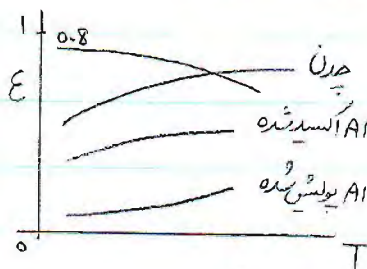 1
0.8
چدن
ε
Al اکسید شده
Al پولیش شده
0
T